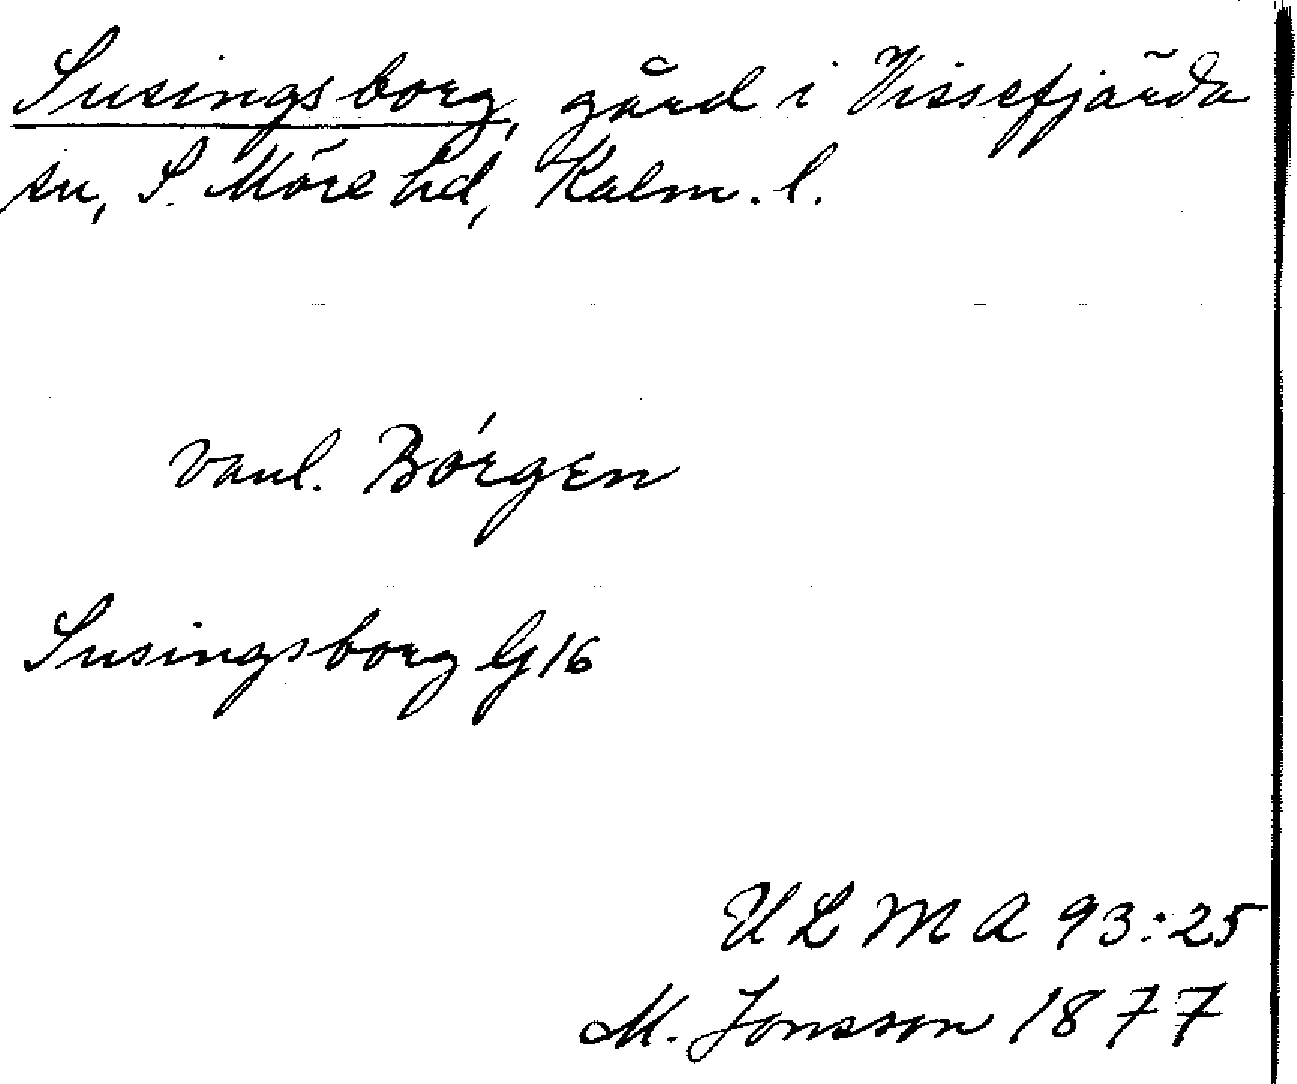 Susingsborg, gård i Vissefjärda
sn, S. Möre hd, Kalm. l.
vanl. Bórgen
Susingsborg G 16
U L M A 93:25
M. Jonsson 1877